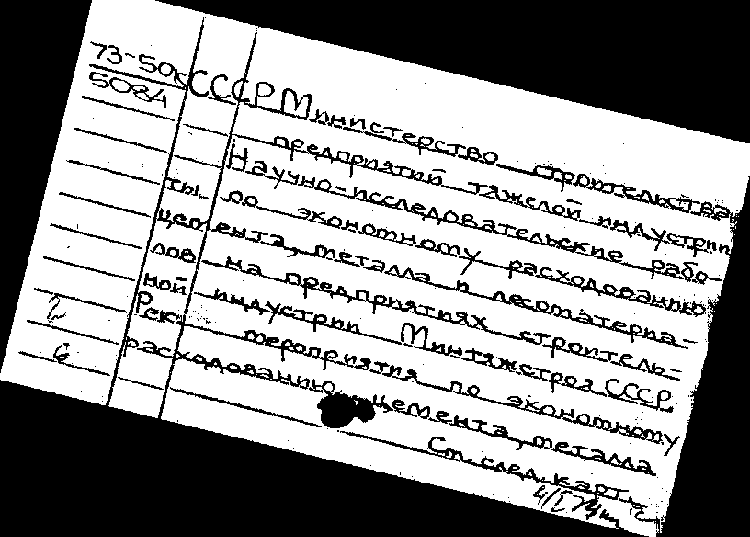 73-50
5084
СССР Министерство строительства
предприятий тяжелой индустрии
Научно-исследовательские рабо-
ты по экономному расходованию
цемента, металла и лесоматериа-
лов на предприятиях строитель-
ной индустрии Минтяжстроя СССР.
Рек. мероприятия по экономному
расходованию цемента, металла
2
6
См. след. карт.